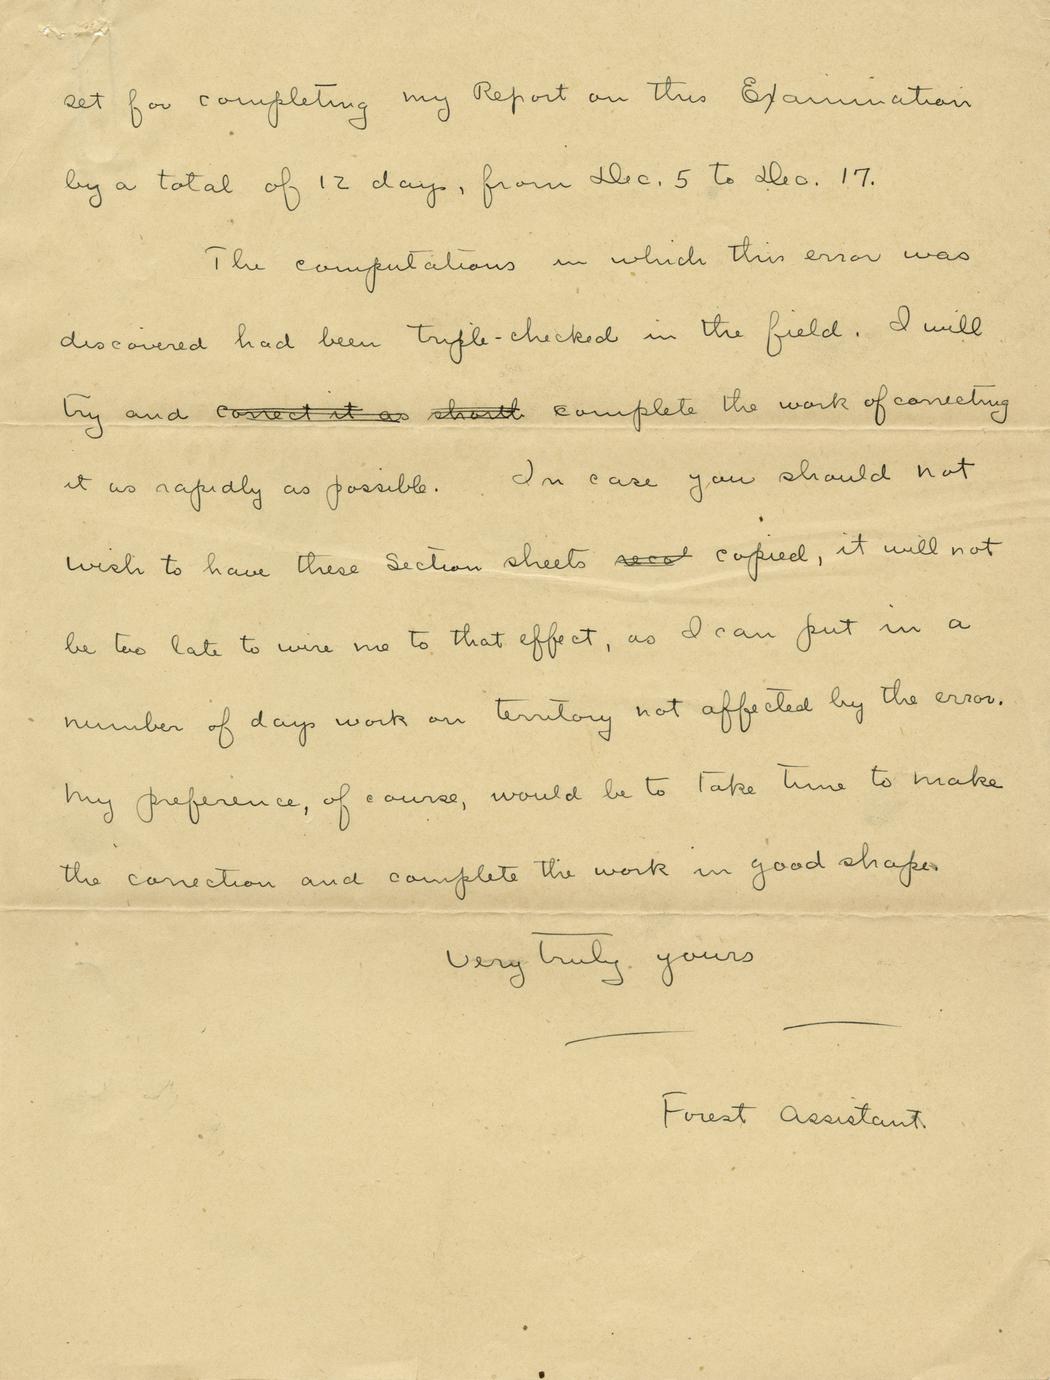 set for completing my Report on this Examination
by a total of 12 days, from Dec. 5 to Dec. 17.
The computations in which this error was
discovered had been triple-checked in the field. I will
try and correct it as complete the work of correcting
it as rapidly as possible. In case you should not
wish to have these Section sheets copied, it will not
be too late to wire me to that effect, as I can put in a
number of days work on territory not affected by the error.
My preference, of course, would be to take time to make
the correction and complete the work in good shape.
Very truly yours
Forest Assistant.